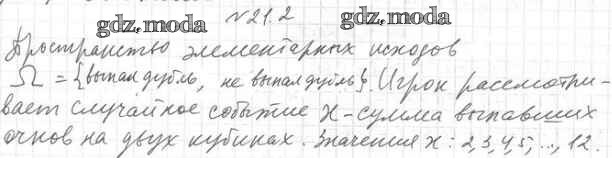 №21.2
gdz.moda gdz.moda
Пространство элементарных исходов
Ω = {выпал дубль, не выпал дубль}. Игрок рассматри-
вает случайное событие X-сумма выпавших
очков на двух кубиках. Значения X: 2,3,4,5,..., 12.